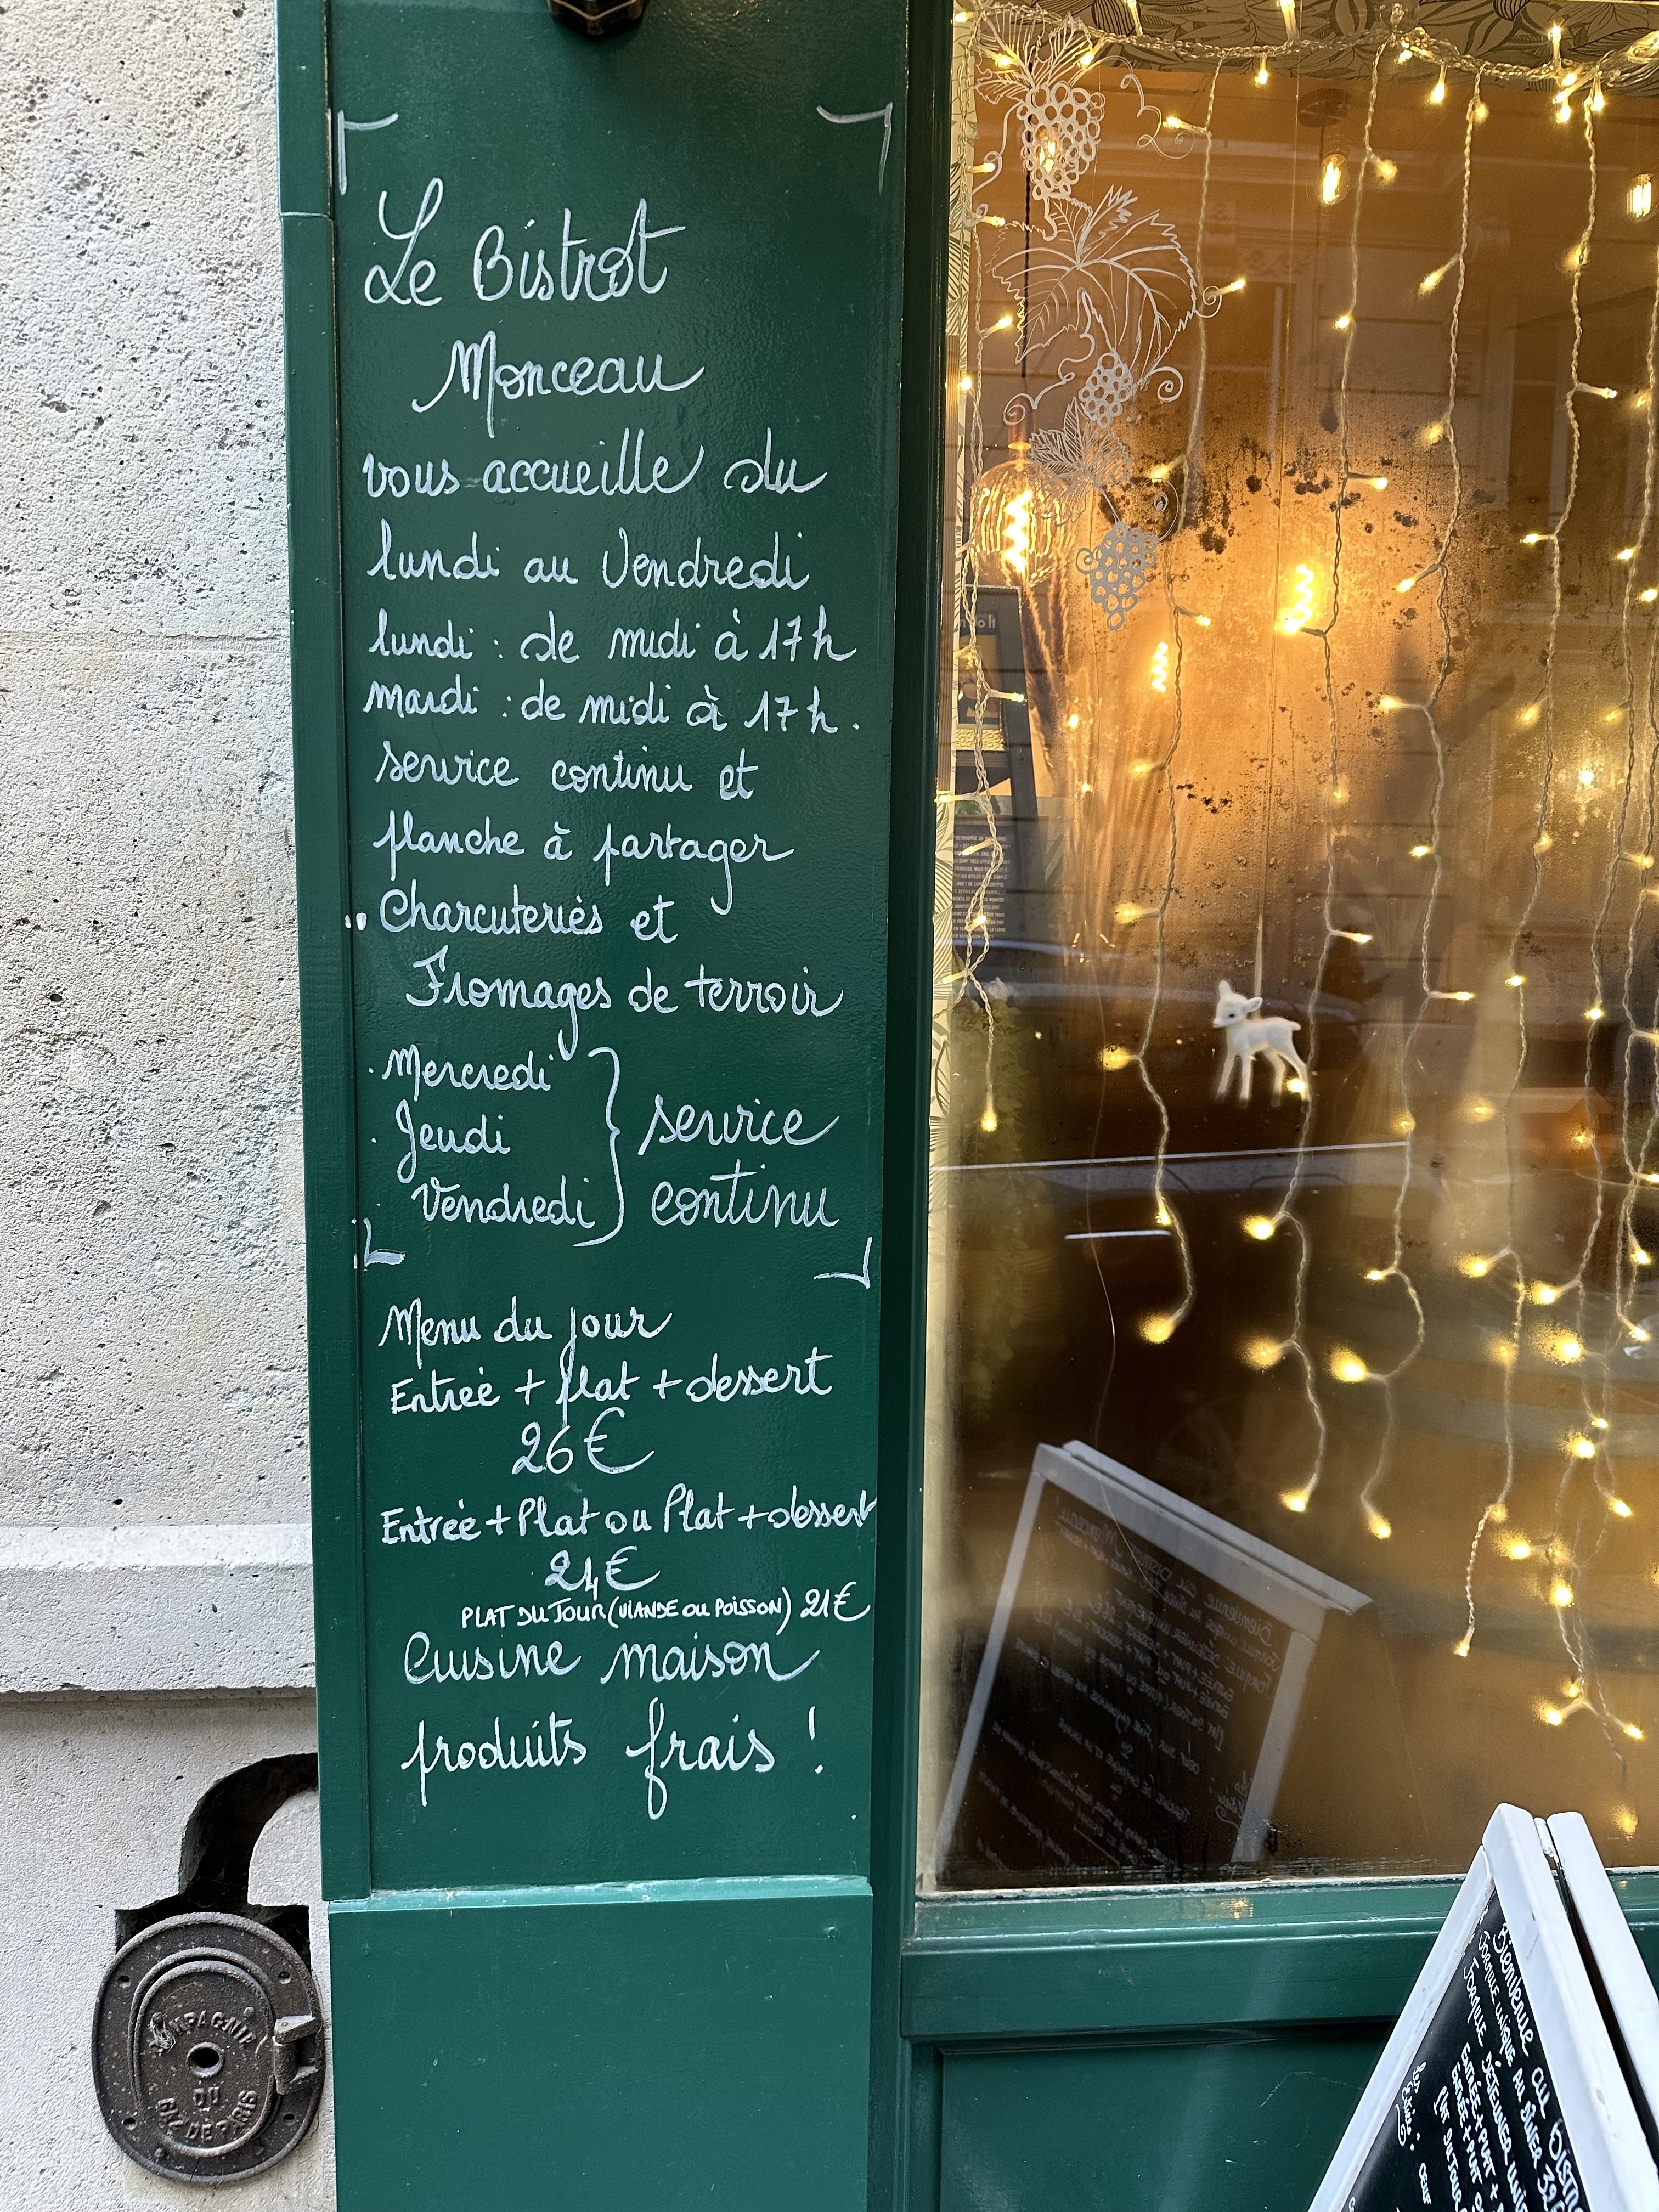 Le Bistrot
Monceau
vous accueille du
lundi au Vendredi
lundi : de midi à 17h
mardi : de midi à 17h.
service continu et
planche à partager
Charcuteries et
Fromages de terroir
Mercredi
Jeudi
Vendredi
service
continu
Menu du jour
Entrée + plat + dessert
26€
Entrée + Plat ou Plat + dessert
24€
PLAT DU JOUR (VIANDE OU POISSON) 21€
Cuisine maison
produits frais !
COMPAGNIE
DU
GAZ DE PARIS
Bienvenue au
FORMULE UNIQUE AU DÎNER
FORMULE DÉJEUNER